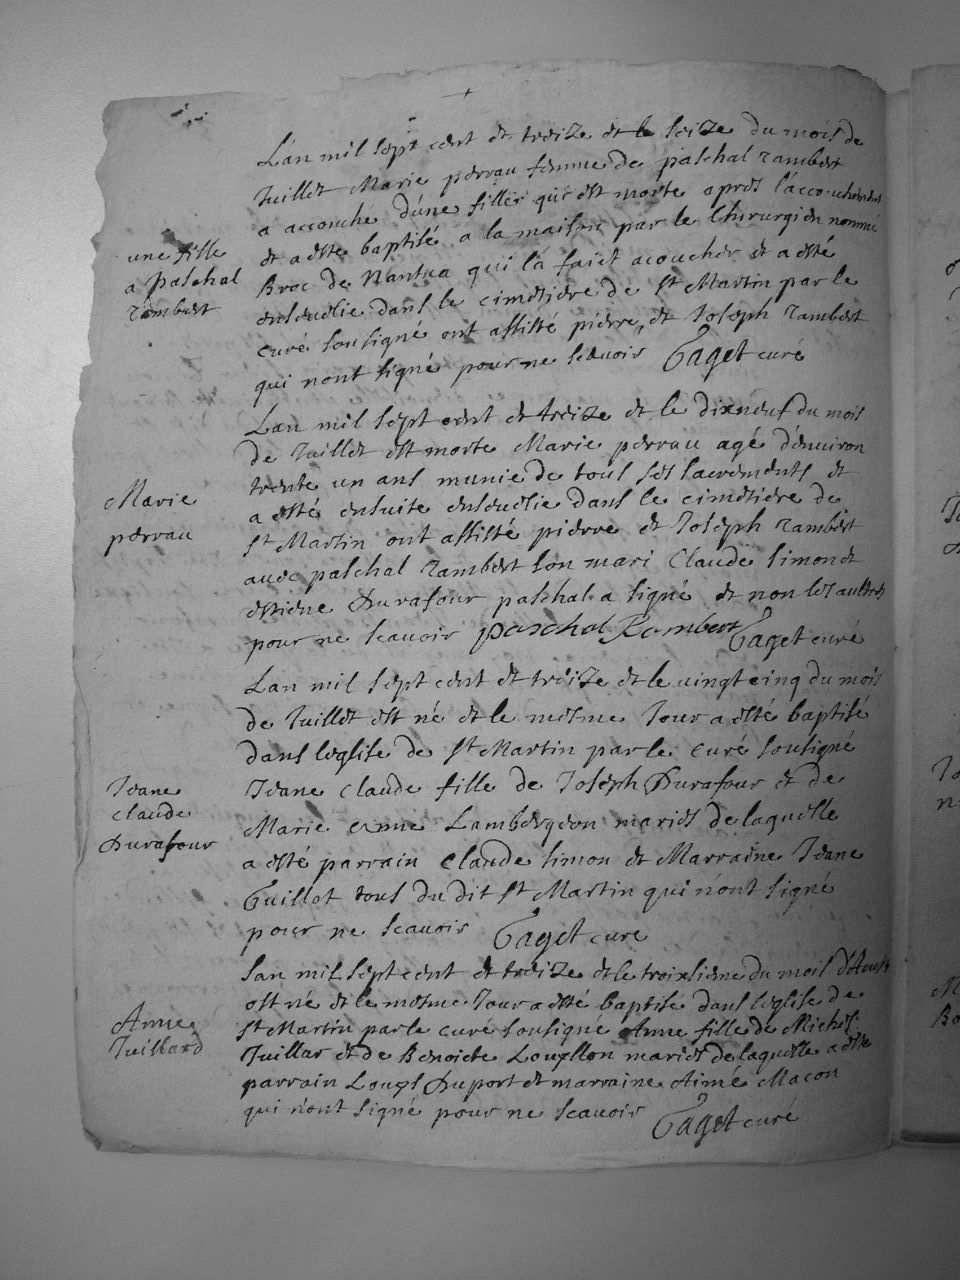 Lan mil sept cent et treize et le seize du mois de
Juillet Marie perrau femme de paschal rambert
a accouché d'une fille qui est morte apres l'accouchement
et a este baptisé a la maison par le Chirurgien nommé
une fille
a paschal
rambert
Broc de Nantua qui la faict acoucher et a esté
ensevelie dans le cimetiere de St Martin par le
curé sousigné ont assisté pierre, et Joseph rambert
qui nont signé pour ne scavoir Gaget curé
Lan mil sept cent et treize et le dixneuf du mois
de Juillet est morte Marie perrau agé d'environ
trente un ans munie de tous ses sacrements et
Marie
perrau
a esté ensuite ensevelie dans le cimetiere de
st Martin ont assisté pierre et Joseph rambert
avec paschal rambert son mari Claude simon et
estiene Durafour paschal a signé et non les aultres
pour ne scavoir paschal Rambert Gaget curé
Lan mil sept cent et treize et le vingt cinq du mois
de Juillet est né et le mesme Jour a esté baptisé
dans leglise de st Martin par le curé sousigné
Jeane
claude
Durafour
Jeane claude fille de Joseph Durafour et de
Marie anne Lambergeon mariés de laquelle
a esté parrain Claude simon et Marraine Jeane
Guillot tous du dit st Martin qui n'ont signé
pour ne scavoir Gaget curé
Lan mil sept cent et treize et le troixsiene du mois d'Aoust
est né et le mesme Jour a esté baptisé dans leglise de
Anne
Juillard
st Martin par le curé sousigné Anne fille de Michel
Juillar et de Benoicte mariés de laquelle a este
parrain Louys Duport et marraine Aimé Macon
qui n'ont signé pour ne scavoir Gaget curé